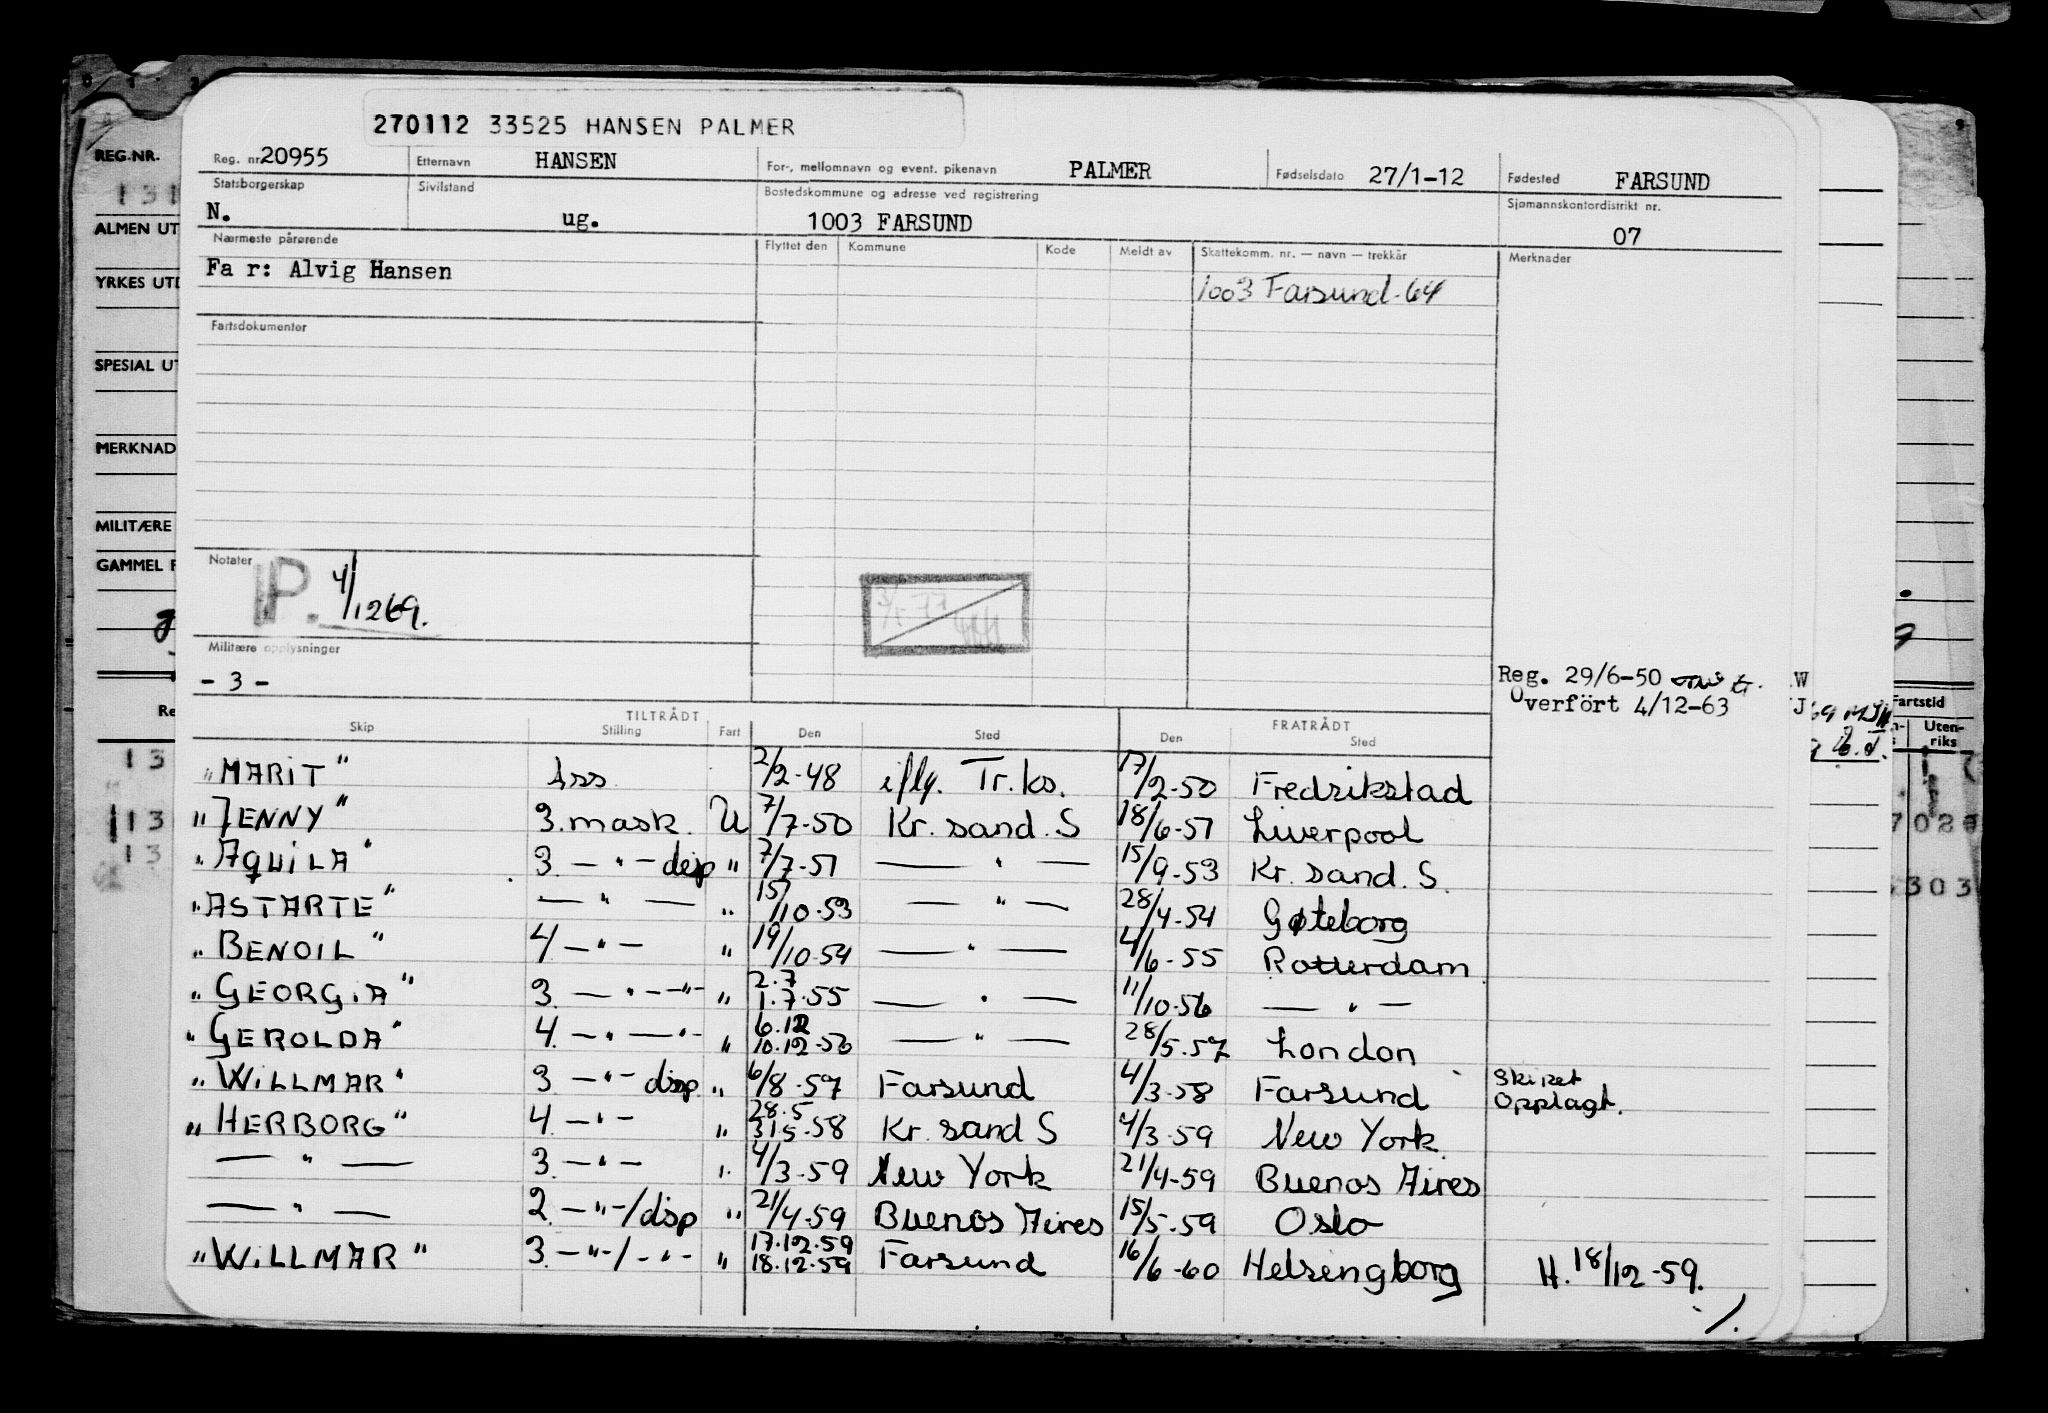 270112 33525 HANSEN PALMER
Reg. nr. 20955 Etternavn HANSEN For-, mellomnavn og event. pikenavn PALMER Fødselsdato 27/1-12 Fødested FARSUND
Statsborgerskap N. Sivilstand ug. Bostedskommune og adresse ved registrering 1003 FARSUND Sjømannskontordistrikt nr. 07
Nærmeste pårørende Flyttet den Kommune Kode Meldt av Skattekomm. nr. — navn — trekkår Merknader
Fa r: Alvig Hansen 1003 Farsund-64
Fartsdokumenter
Notater
P. 4/1269.
Militære opplysninger
- 3 -
Reg. 29/6-50
Overfört 4/12-63
TILTRÅDT FRATRÅDT
Skip Stilling Fart Den Sted Den Sted
"MARIT" Ass 2/2-48 iflg. Tr.ks. 17/2-50 Fredrikstad
"JENNY" 3.mask. U 7/7-50 Kr.sand.S 18/6-51 Liverpool
"AQUILA" 3. — " — disp " 7/7-51 — " — 15/9-53 Kr.sand.S.
"ASTARTE" — " — " 15/10-53 — " — 28/4-54 Gøteborg
"BENOIL" 4 — " — " 19/10-54 — " — 4/6-55 Rotterdam
"GEORGIA" 3. — " — " — " 2.7 1.7-55 — " — 11/10-56 — " —
"GEROLDA" 4. — " — " — " 6.12 10.12-56 — " — 28/5-57 London
"WILLMAR" 3 — " — disp. " 6/8-57 Farsund 4/3-58 Farsund Skipet opplagt.
"HERBORG" 4. — " — " 28.5 31.5-58 Kr.sand S 4/3-59 New York.
— " — 3. — " — " 4/3-59 New York 21/4-59 Buenos Aires
— " — 2. — " —/disp " 21/4-59 Buenos Aires 15/5-59 Oslo
"WILLMAR" 3. — " —/ — " — " 17.12.59 18.12.59 Farsund 16/6-60 Helsingborg H. 18/12-59.
REG.NR.
131
ALMEN UT
YRKES UTD
SPESIAL UT
MERKNAD
MILITÆRE
GAMMEL F
Re
13
13
13
Fartstid
Uten-
riks
303